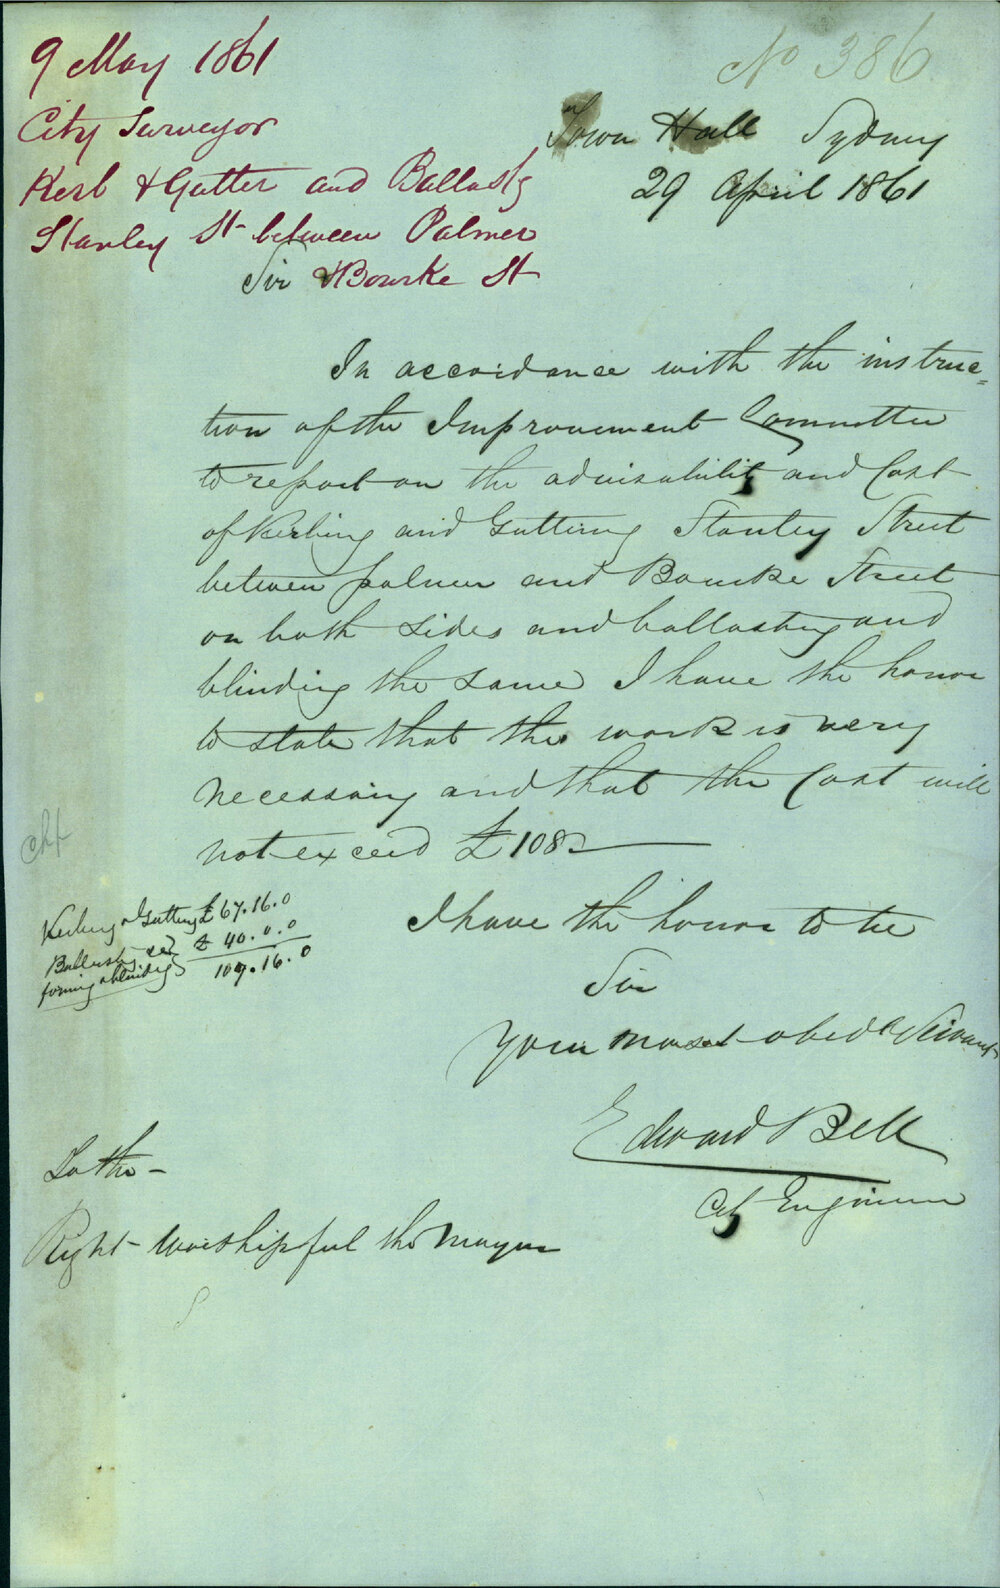 No 386
9 May 1861
City Surveyor
Kerb & Gutter and Ballastg
Stanley St between Palmer
& Bourke St
Town Hall Sydney
29 April 1861
Sir
In accordance with the instruc=
tion of the Improvement Committee
to report on the advisability and Cost
of Kerbing and Guttering Stanley Street
between palmer and Bourke Street
on both sides and ballasting and
blinding the same I have the honor
to state that the work is very
necessary and that the Cost will
not exceed £108
Kerbing & Guttering £67.16.0
Ballasting
forming & blinding £40.0.0
107.16.0
I have the honor to be
Sir
Your most obedt Servant
Edward Bell
City Engineer
To the
Right Worshipful the Mayor